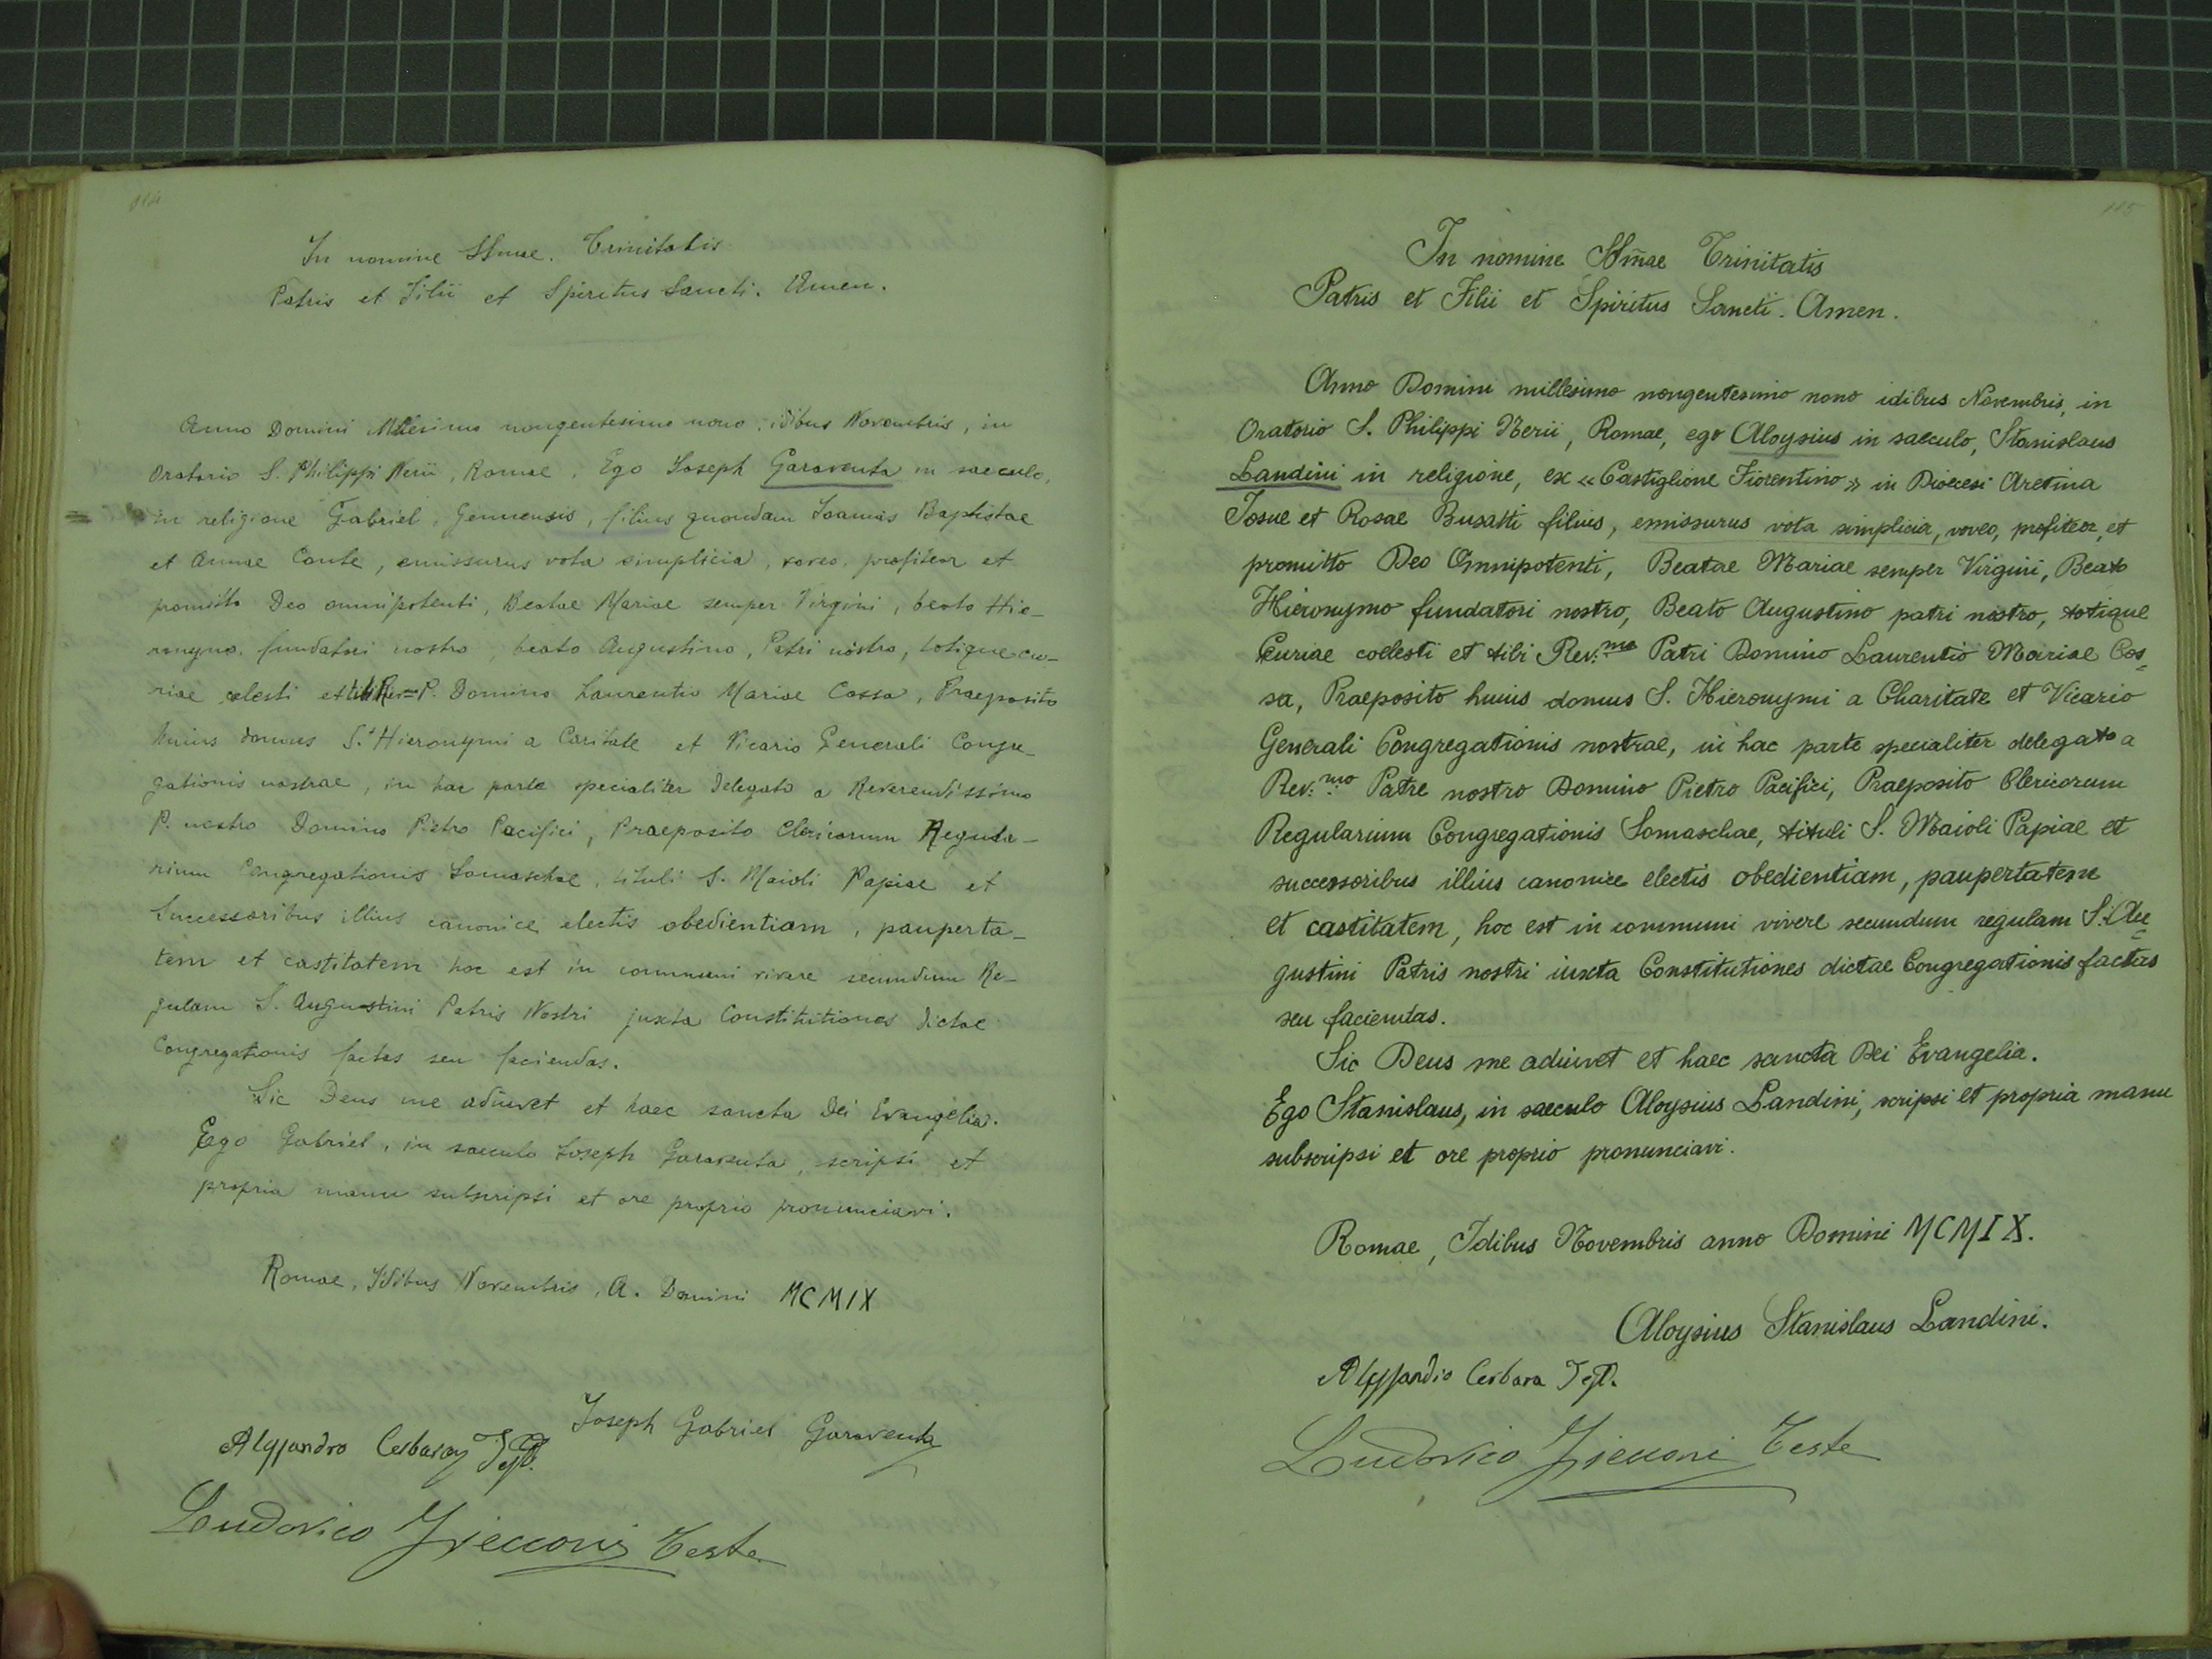 114
In nomine SSmae. Trinitatis
Patris et Filii et Spiritus Sancti. Amen.
Anno Domini Millesimo nongentesimo nono, idibus Novembris, in
Oratorio S. Philippi Nerii, Romae, Ego Joseph Garaventa in saeculo,
in religione Gabriel, Genuensis, filius quondam Joannis Baptistae
et Annae Conte, emissurus vota simplicia, voveo, profiteor et
promitto Deo omnipotenti, Beatae Mariae semper Virgini, beato Hie-
ronymo, fundatori nostro, beato Augustino, Patri nostro, totique cu-
riae celesti et tibi P. Domino Laurentio Mariae Cossa, Praeposito
huius domus S.ti Hieronymi a Caritate et Vicario Generali Congre-
gationis nostrae, in hac parte specialiter delegato a Reverendissimo
P. nostro Domino Pietro Pacifici, Praeposito Clericorum Regula-
rium Congregationis Somaschae, tituli S. Maioli Papiae et
successoribus illius canonice electis obedientiam, pauperta-
tem et castitatem hoc est in communi vivere secundum Re-
gulam S. Augustini Patris Nostri juxta Constitutiones dictae
Congregationis factas seu faciendas.
Sic Deus me adiuvet et haec sancta Dei Evangelia.
Ego Gabriel, in saeculo Joseph Garaventa, scripsi et
propria manu subscripsi et ore proprio pronunciavi.
Romae, Idibus Novembris, A. Domini MCMIX
Joseph Gabriel Garaventa
Ludovico Teste
115
In nomine SSm̄ae Trinitatis
Patris et Filii et Spiritus Sancti. Amen.
Anno Domini millesimo nongentesimo nono idibus Novembris, in
Oratorio S. Philippi Nerii, Romae, ego Aloysius in saeculo, Stanislaus
Landini in religione, ex «Castiglione Fiorentino» in Dioecesi Aretina
Iosue et Rosae Busatti filius, emissurus vota simplicia, voveo, profiteor, et
promitto Deo Omnipotenti, Beatae Mariae semper Virgini, Beato
Hieronymo fundatori nostro, Beato Augustino patri nostro, totique
Curiae coelesti et tibi Rev.mo Patri Domino Laurentio Mariae Cos=
sa, Praeposito huius domus S. Hieronymi a Charitate et Vicario
Generali Congregationis nostrae, in hac parte specialiter delegato a
Rev.mo Patre nostro Domino Pietro Pacifici, Praeposito Clericorum
Regularium Congregationis Somaschae, tituli S. Maioli Papiae et
successoribus illius canonice electis obedientiam, paupertatem
et castitatem, hoc est in communi vivere secundum regulam S.ti Au=
gustini Patris nostri iuxta Constitutiones dictae Congregationis factas
seu faciendas.
Sic Deus me adiuvet et haec sancta Dei Evangelia.
Ego Stanislaus, in saeculo Aloysius Landini, scripsi et propria manu
subscripsi et ore proprio pronunciavi.
Romae, Idibus Novembris anno Domini MCMIX.
Aloysius Stanislaus Landini.
Cerbara
Ludovico Teste